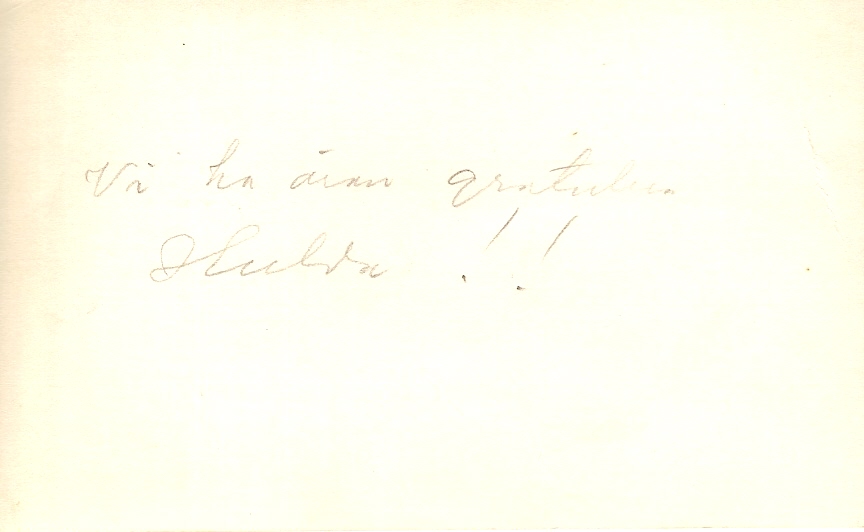 Vi ha äran gratulera
Hulda !!